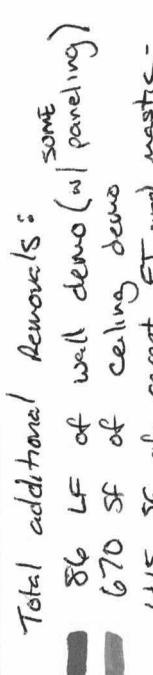 Total additional Removals:
86 LF of wall demo (w/ SOME paneling)
670 SF of ceiling demo
SF of carpet, FT and mastic-